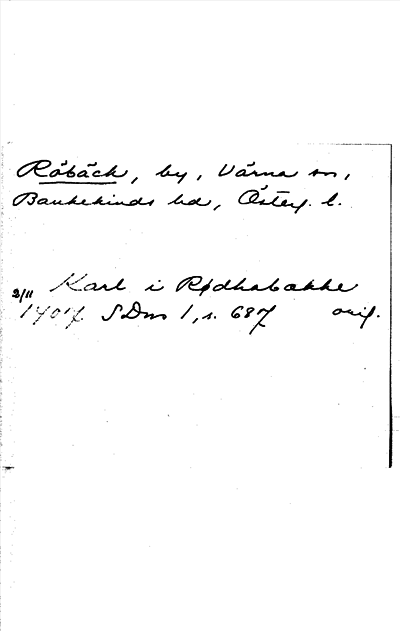 Röbäck, by, Värna sn,
Bankekinds hd, Österg. l.
Karl i Rødhabakke
2/11 1407 SDns 1, s. 687 orig.